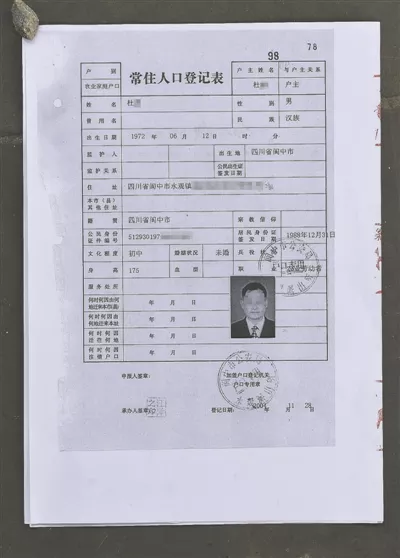 78
98
常住人口登记表
户 别
农业家庭户口
户主姓名
杜
与户主关系
户主
姓 名
杜
性 别
男
曾用名
民 族
汉族
出生日期
1972 年 06 月 12 日 时 分
监护人
出生地
四川省阆中市
监护关系
公民出生证
签发日期
住 址
四川省阆中市水观镇
本市(县)
其他住址
籍 贯
四川省阆中市
宗教信仰
公民身份
证件编号
512930197
居民身份证
签发日期
1988年12月31日
文化程度
初中
婚姻状况
未婚
兵役状况
身 高
175
血 型
职 业
服务处所
何时何因由何
年 月 日
何时何因由
年 月 日
何时何因
年 月 日
何时何因
年 月 日
申报人签章:
加盖户口登记机关
户口专用章
承办人签章:
登记日期: 2001 年 11 月 28 日